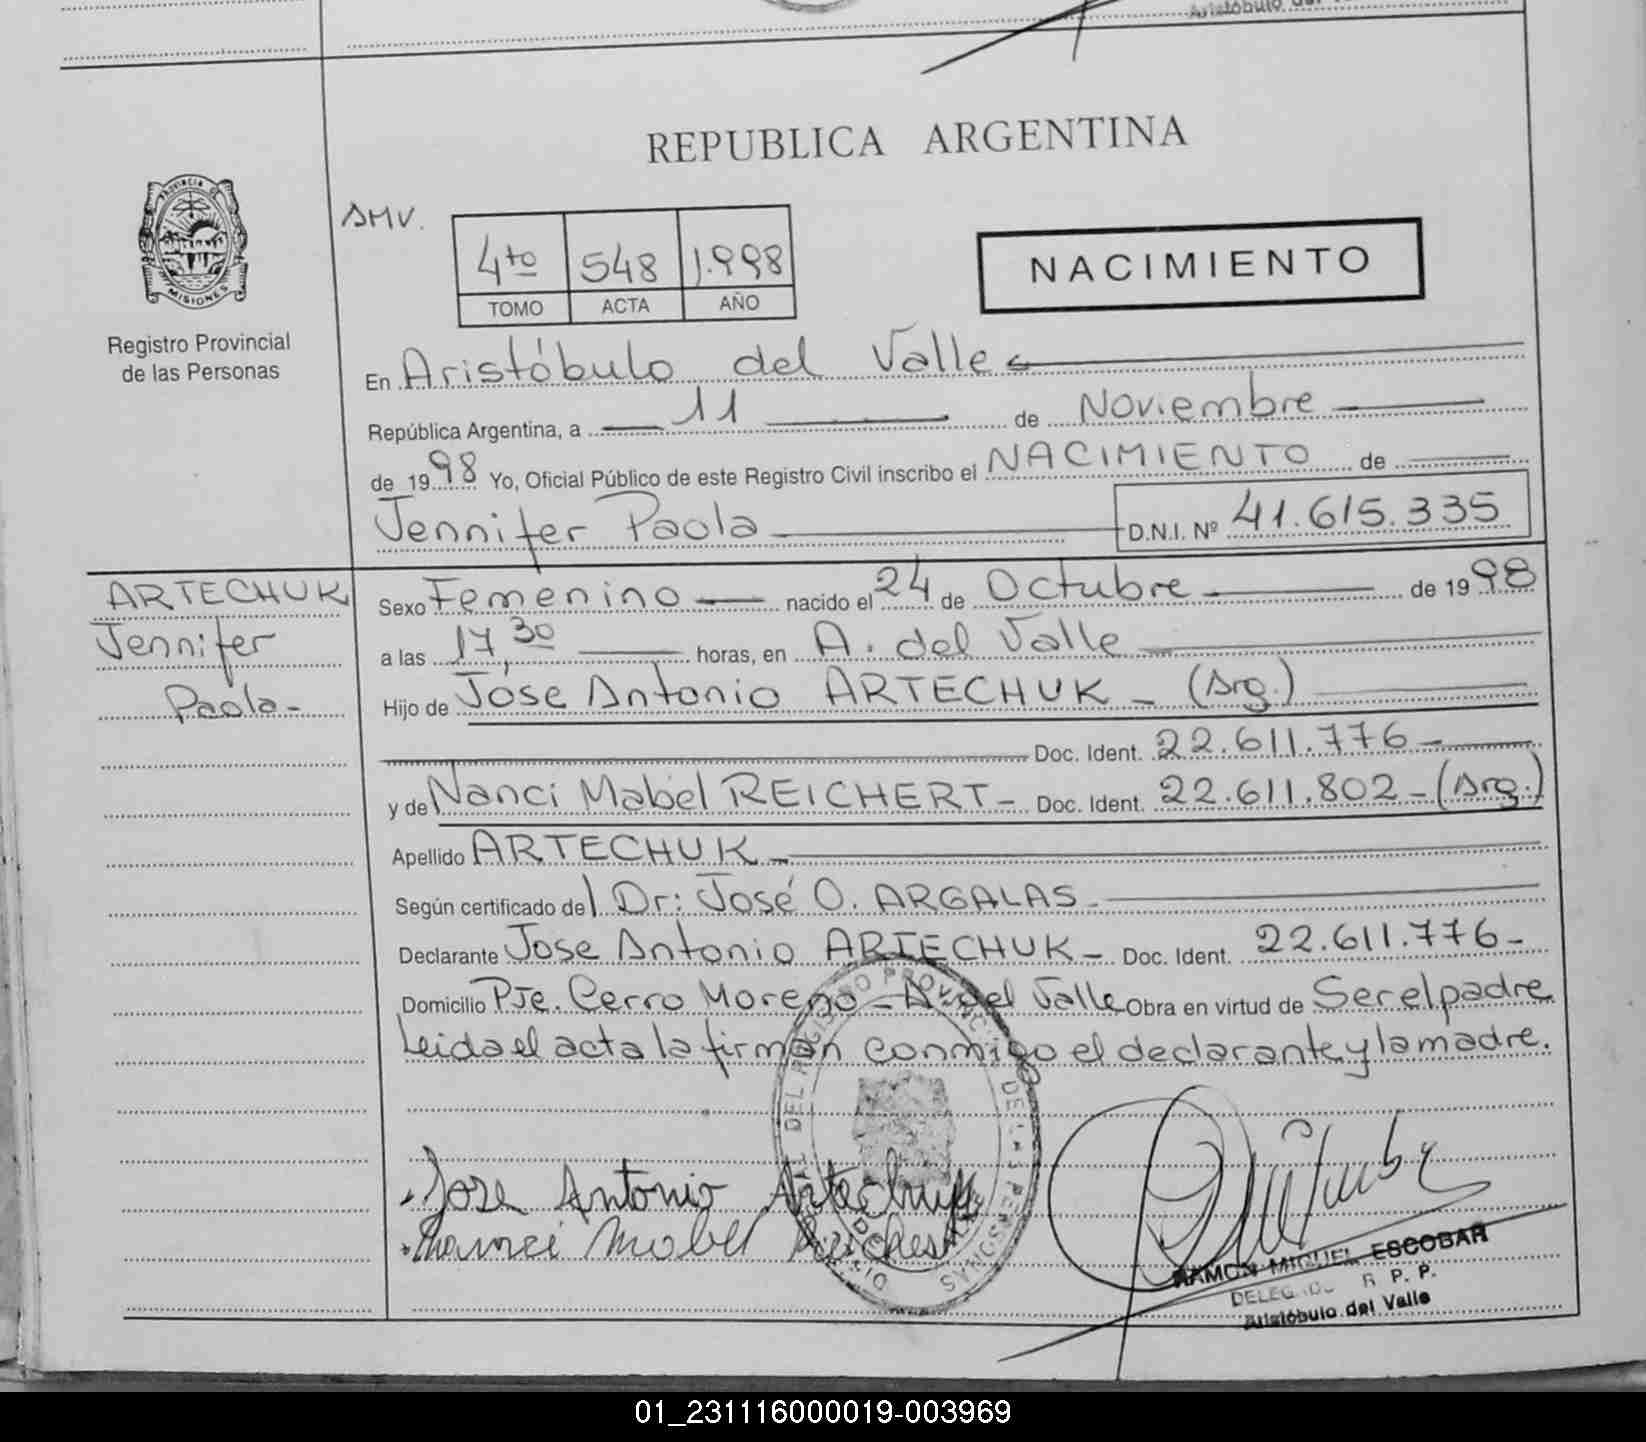 Aristóbulo del
REPUBLICA ARGENTINA
PROVINCIA DE
MISIONES
Registro Provincial
de las Personas
AMV.
4to 548 1.998
TOMO ACTA AÑO
NACIMIENTO
En Aristóbulo del Valle
República Argentina, a 11 de Noviembre
de 1998 Yo, Oficial Público de este Registro Civil inscribo el NACIMIENTO de
Jennifer Paola D.N.I. Nº 41.615.335
ARTECHUK
Jennifer
Paola-
Sexo Femenino nacido el 24 de Octubre de 1998
a las 17,30 horas, en A. del Valle
Hijo de José Antonio ARTECHUK - (Arg.)
Doc. Ident. 22.611.776-
y de Nanci Mabel REICHERT- Doc. Ident. 22.611.802-(Arg.)
Apellido ARTECHUK-
Según certificado del Dr: José O. ARGALAS-
Declarante Jose Antonio ARTECHUK- Doc. Ident. 22.611.776-
Domicilio Pje. Cerro Moreno-A. del Valle Obra en virtud de Ser el padre
Leida el acta la firman conmigo el declarante y la madre.
DEL REGISTRO PROVINCIAL DE LAS PERSONAS
Jose Antonio Artechuk
Nanci Mabel Reichert
RAMON MIGUEL ESCOBAR
DELEGADO R. P. P.
Aristóbulo del Valle
01_231116000019-003969